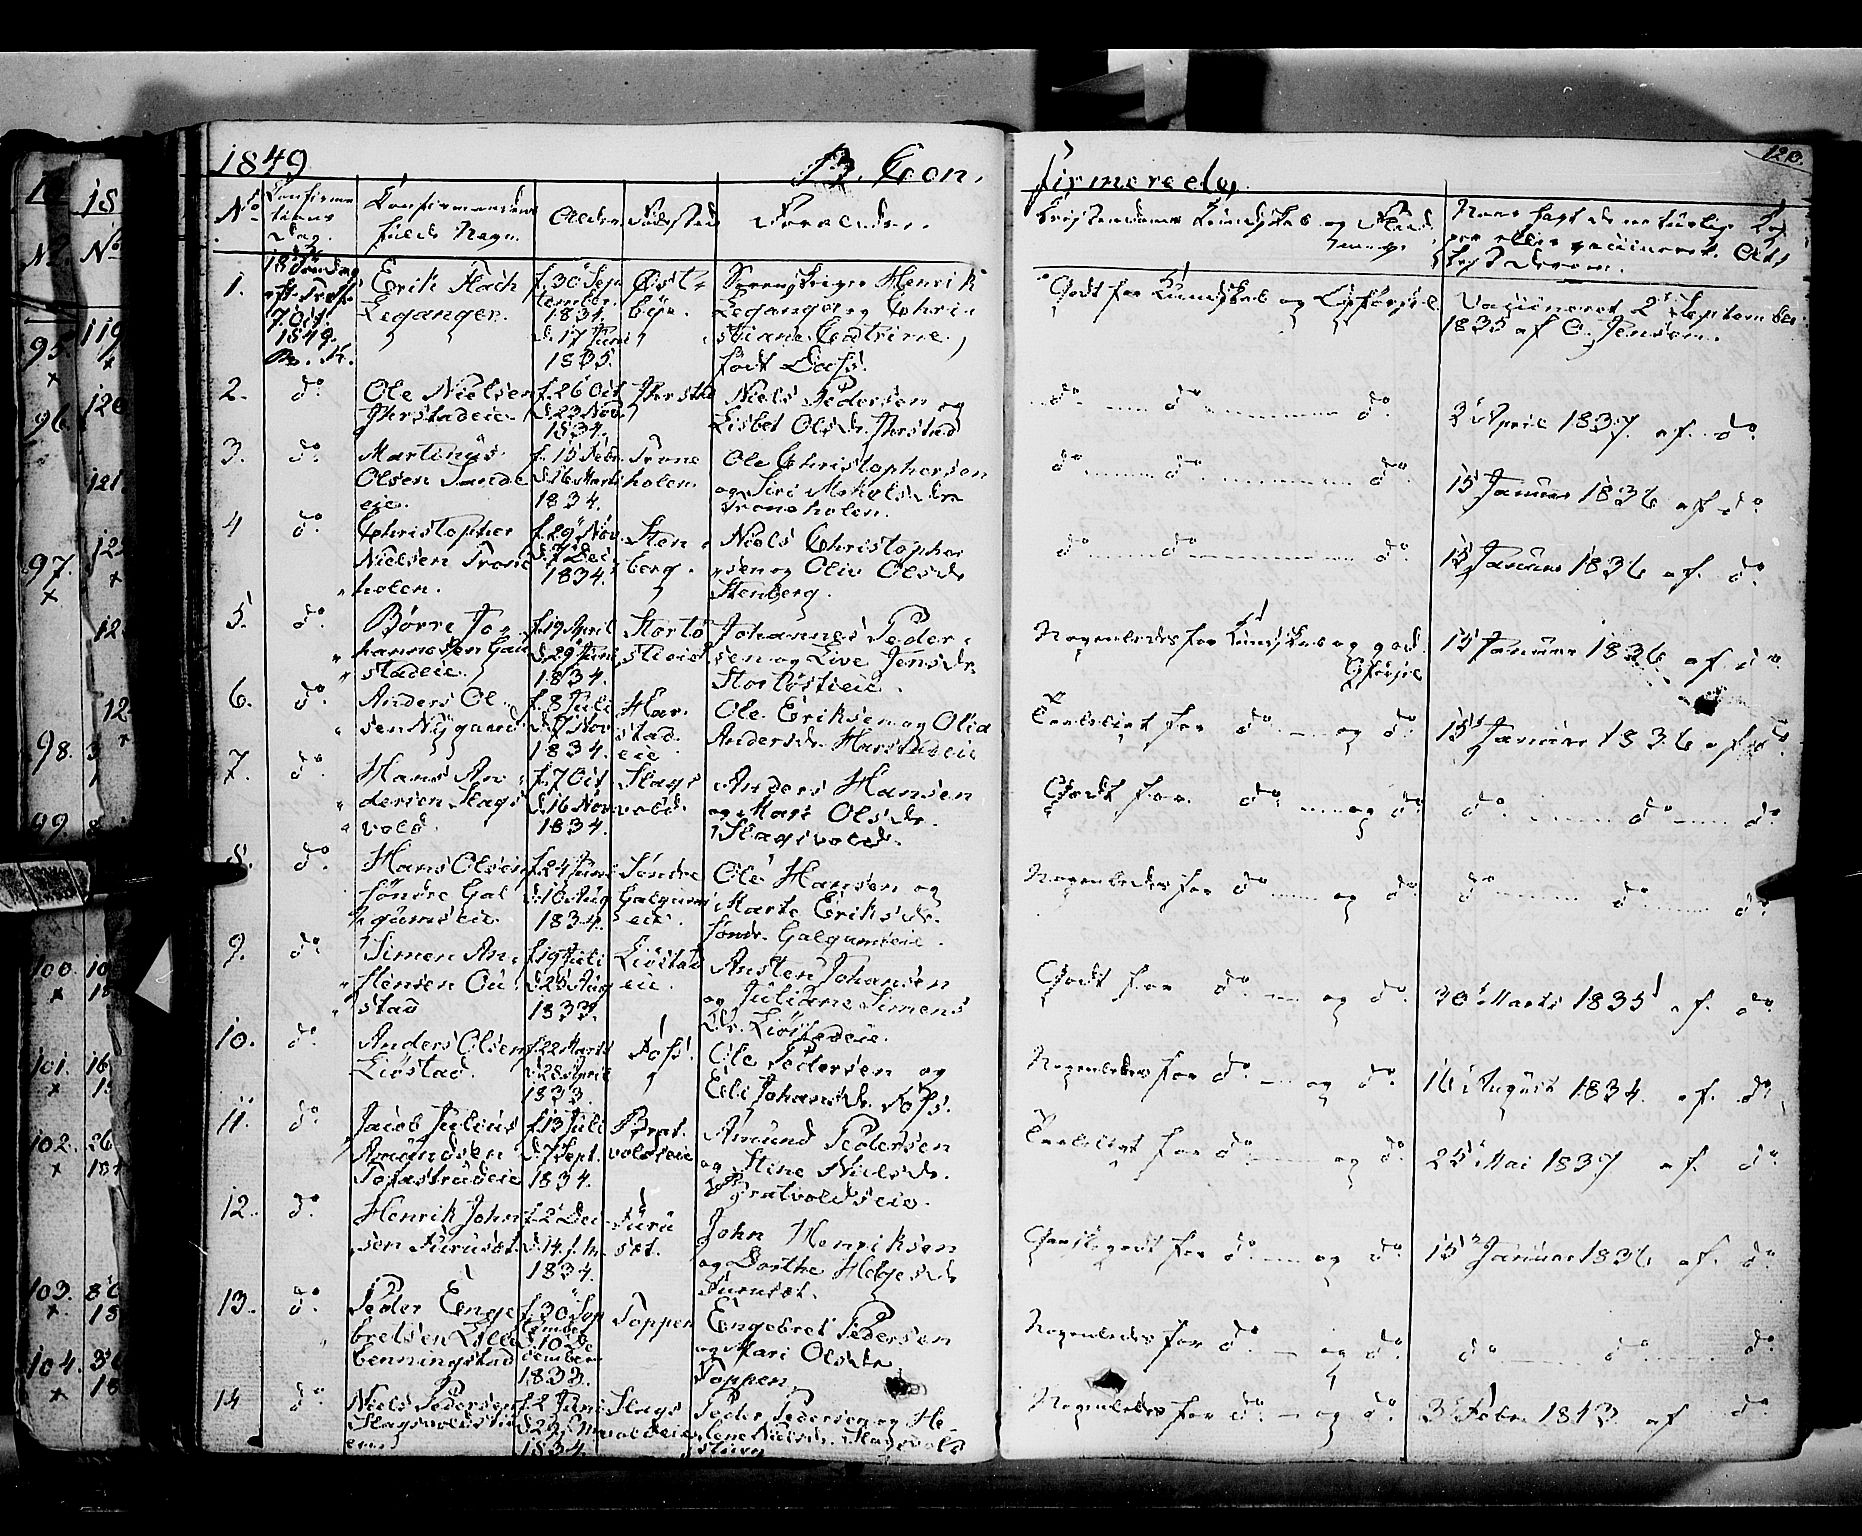 1849
B. Con,
firmerede,
120.
No
Confirma
tions
Dag.
Confirmandens
fulde Nagn.
Alder
Fødested
Forældre.
Kristendoms Kundskab og
Naar havt de naturlige Kop
per eller vaccineret. Att
1.
18 Søndag
7 Oct.
1849.
Erik Hach
Leganger.
f. 30 Sep
tember
1834.
d. 17 Juni
1835.
Østbye.
Henrik
Leganger og Chri
stiane Catrine
født Dass.
Godt for Kundskab og
Vaccineret 2 September
1835 af C. Jensen.
2.
do
Ole Nielsen
f. 26 Oct
d. 23 Nov.
1834.
Niels Pedersen og
Lisbet Olsdr.
do do do
3 April 1837. af do
3.
do
Martinus
Olsen Sande
eie.
f. 15 Febr.
d. 16 Marts
1834.
Trone
holen.
Ole Christophersen
og Siri
Troneholen.
do do do
15 Januar 1836 af do
4
do
Christopher
Nielsen Trone
holen.
f. 29 Nov.
d. 7 Dec
1834.
Sten
berg.
Niels Christopher
sen og Oliv Olsdr
Stenberg.
do do do
15 Januar 1836 af. do
5.
do
Børre Jo
hannesen Gau
stadeie.
f. 19 April
d. 29 Juni
1834.
Stortø
stieie
Johannes Peder
sen og Live Jensdr.
Stortøstieie.
Nogenledes for Kundskab og god
15 Januar 1836 af do
6.
do
Anders Ol
sen Nygaard
f. 8 Juli
d. 7 Nov
1834.
Har
stad
eie
Ole Eriksen og Olia
Andersdr. Harstadeie
Taaleligt for do og do
15 Januar 1836 af do
7.
do
Hans An
dersen Slags
vold.
f. 7 Oct
d. 16 Nov.
1834.
Slags
vold.
Anders Hansen
og Mari Olsdr.
Slagsvold.
Godt for do og do
do do do
8.
do
Hans Olsen
søndre Gal
gumseie.
f. 24 Juni
d. 10 Aug
1834.
Søndre
Galgum
eie.
Ole Hansen og
Marte Eriksdr.
søndr. Galgumseie.
Nogenledes for do og do
do do do
9.
do
Simen An
stensen Ou
stad
f. 19 Juli
d. 25 Aug
1833.
Liøstad
eie.
Ansten Johansen
og Juliane Simens
dr. Liøstadeie.
Godt for do og do
30 Marts 1835 af. do
10.
do
Anders Olsen
Liøstad.
f. 22 Marts
d. 28 April
1833.
Foss.
Ole Pedersen og
Eli Johansdr. Foss.
Nogenledes for do og do
16 August 1834. af. do
11.
do
Jacob Julius
Amundsen
Tofastrudeie
f. 13 Juli
d. 7 Sept.
1834.
Brat
voldseie
Amund Pedersen
og Stine Nielsdr.
Bratvoldseie.
Taaleligt for do og do
25 Mai 1837 af. do
12.
do
Henrik John
sen Furuset.
f. 2 Dec
1834.
Furu
set.
John Henriksen
og Dorthe Helgesdr
Furuset.
Ganske godt for do og do
15 Januar 1836 af. do
13.
do
Peder Enge
bretsen Lille
benningstad
f. 30 Sep
tember
d. 10 De
cember
1833.
Toppen
Engebret Pedersen
og Mari Olsdr.
Toppen.
Nogenledes for do og do
do do do
14
do
Niels Pedersen
f. 2 Juni
1834.
Slags
voldeie
Peder Pedersen og He
lene Nielsdr. Slagsvold
Nogenledes for do og do
3 Febr 1843 af do
95.
96.
97.
98.
99.
100.
101.
102.
103.
104.
119
120
121